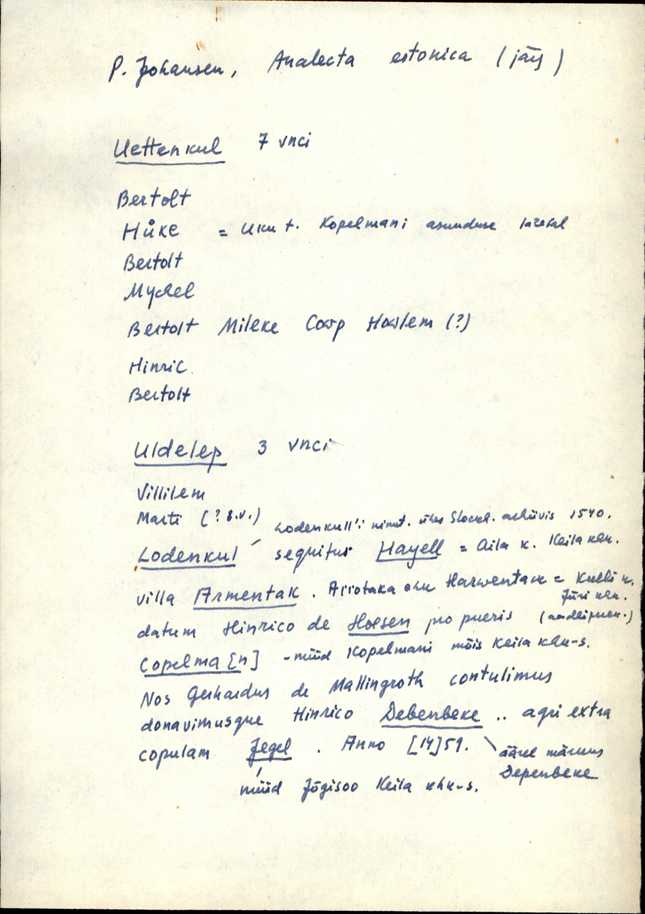 P. Johansen, Analecta estonica (järg)
Uettenkul 7 vnci
Bertolt
Hůke = Uku t. Kopelmani asunduse
Bertolt
Mychel
Bertolt Mileke Corp Horlem (?)
Hinric
Bertolt
Uldelep 3 vnci
Villilem
Marti (? s.v.)
Lodenkull'i nimet. 1540.
Lodenkul sequitur Hayell = Aila k. Keila khn.
villa Armentak. Arrotaka ehk Harwentack = Kulli k.
Jüri khn.
datum Hinrico de Hoesen pro pueris
Copelma[n] - nüüd Kopelmani mõis Keila khk-s.
Nos Gerhardus de Mallingroth contulimus
donavimusque Hinrico Debenbeke .. agri extra
copulam Jegel. Anno [14]51.
äärel märkus
Depenbeke
nüüd Jõgisoo Keila khk-s.